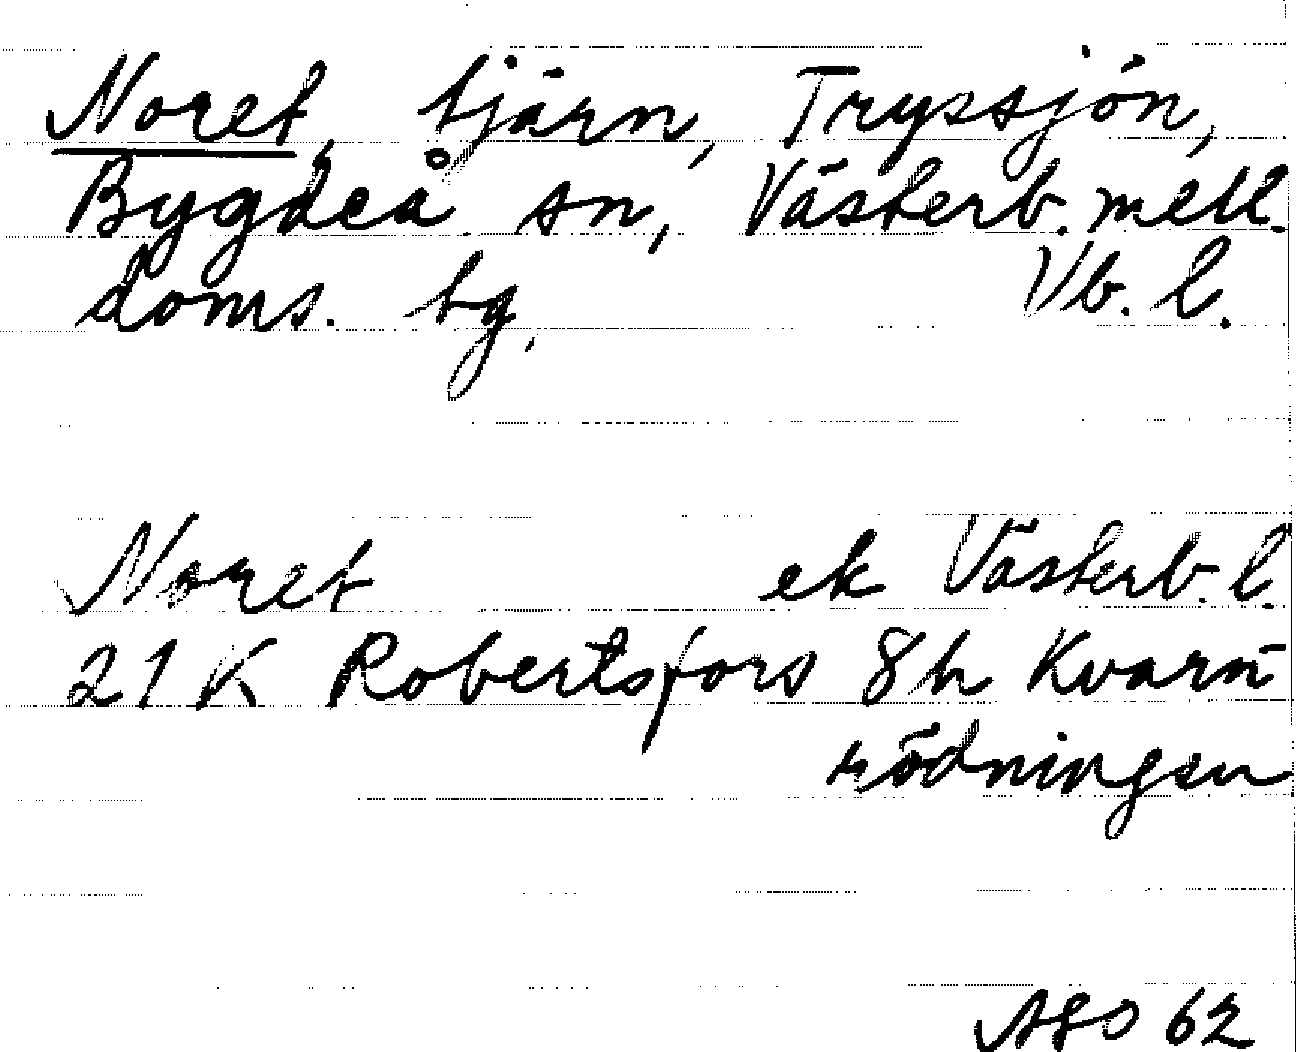 Noret, tjärn, Tryssjön,
Bygdeå sn, Västerb. mell.
doms. bg, Vb. l.
Noret ek Västerb. l.
21 K Robertsfors 8h Kvarn-
rödningen
62